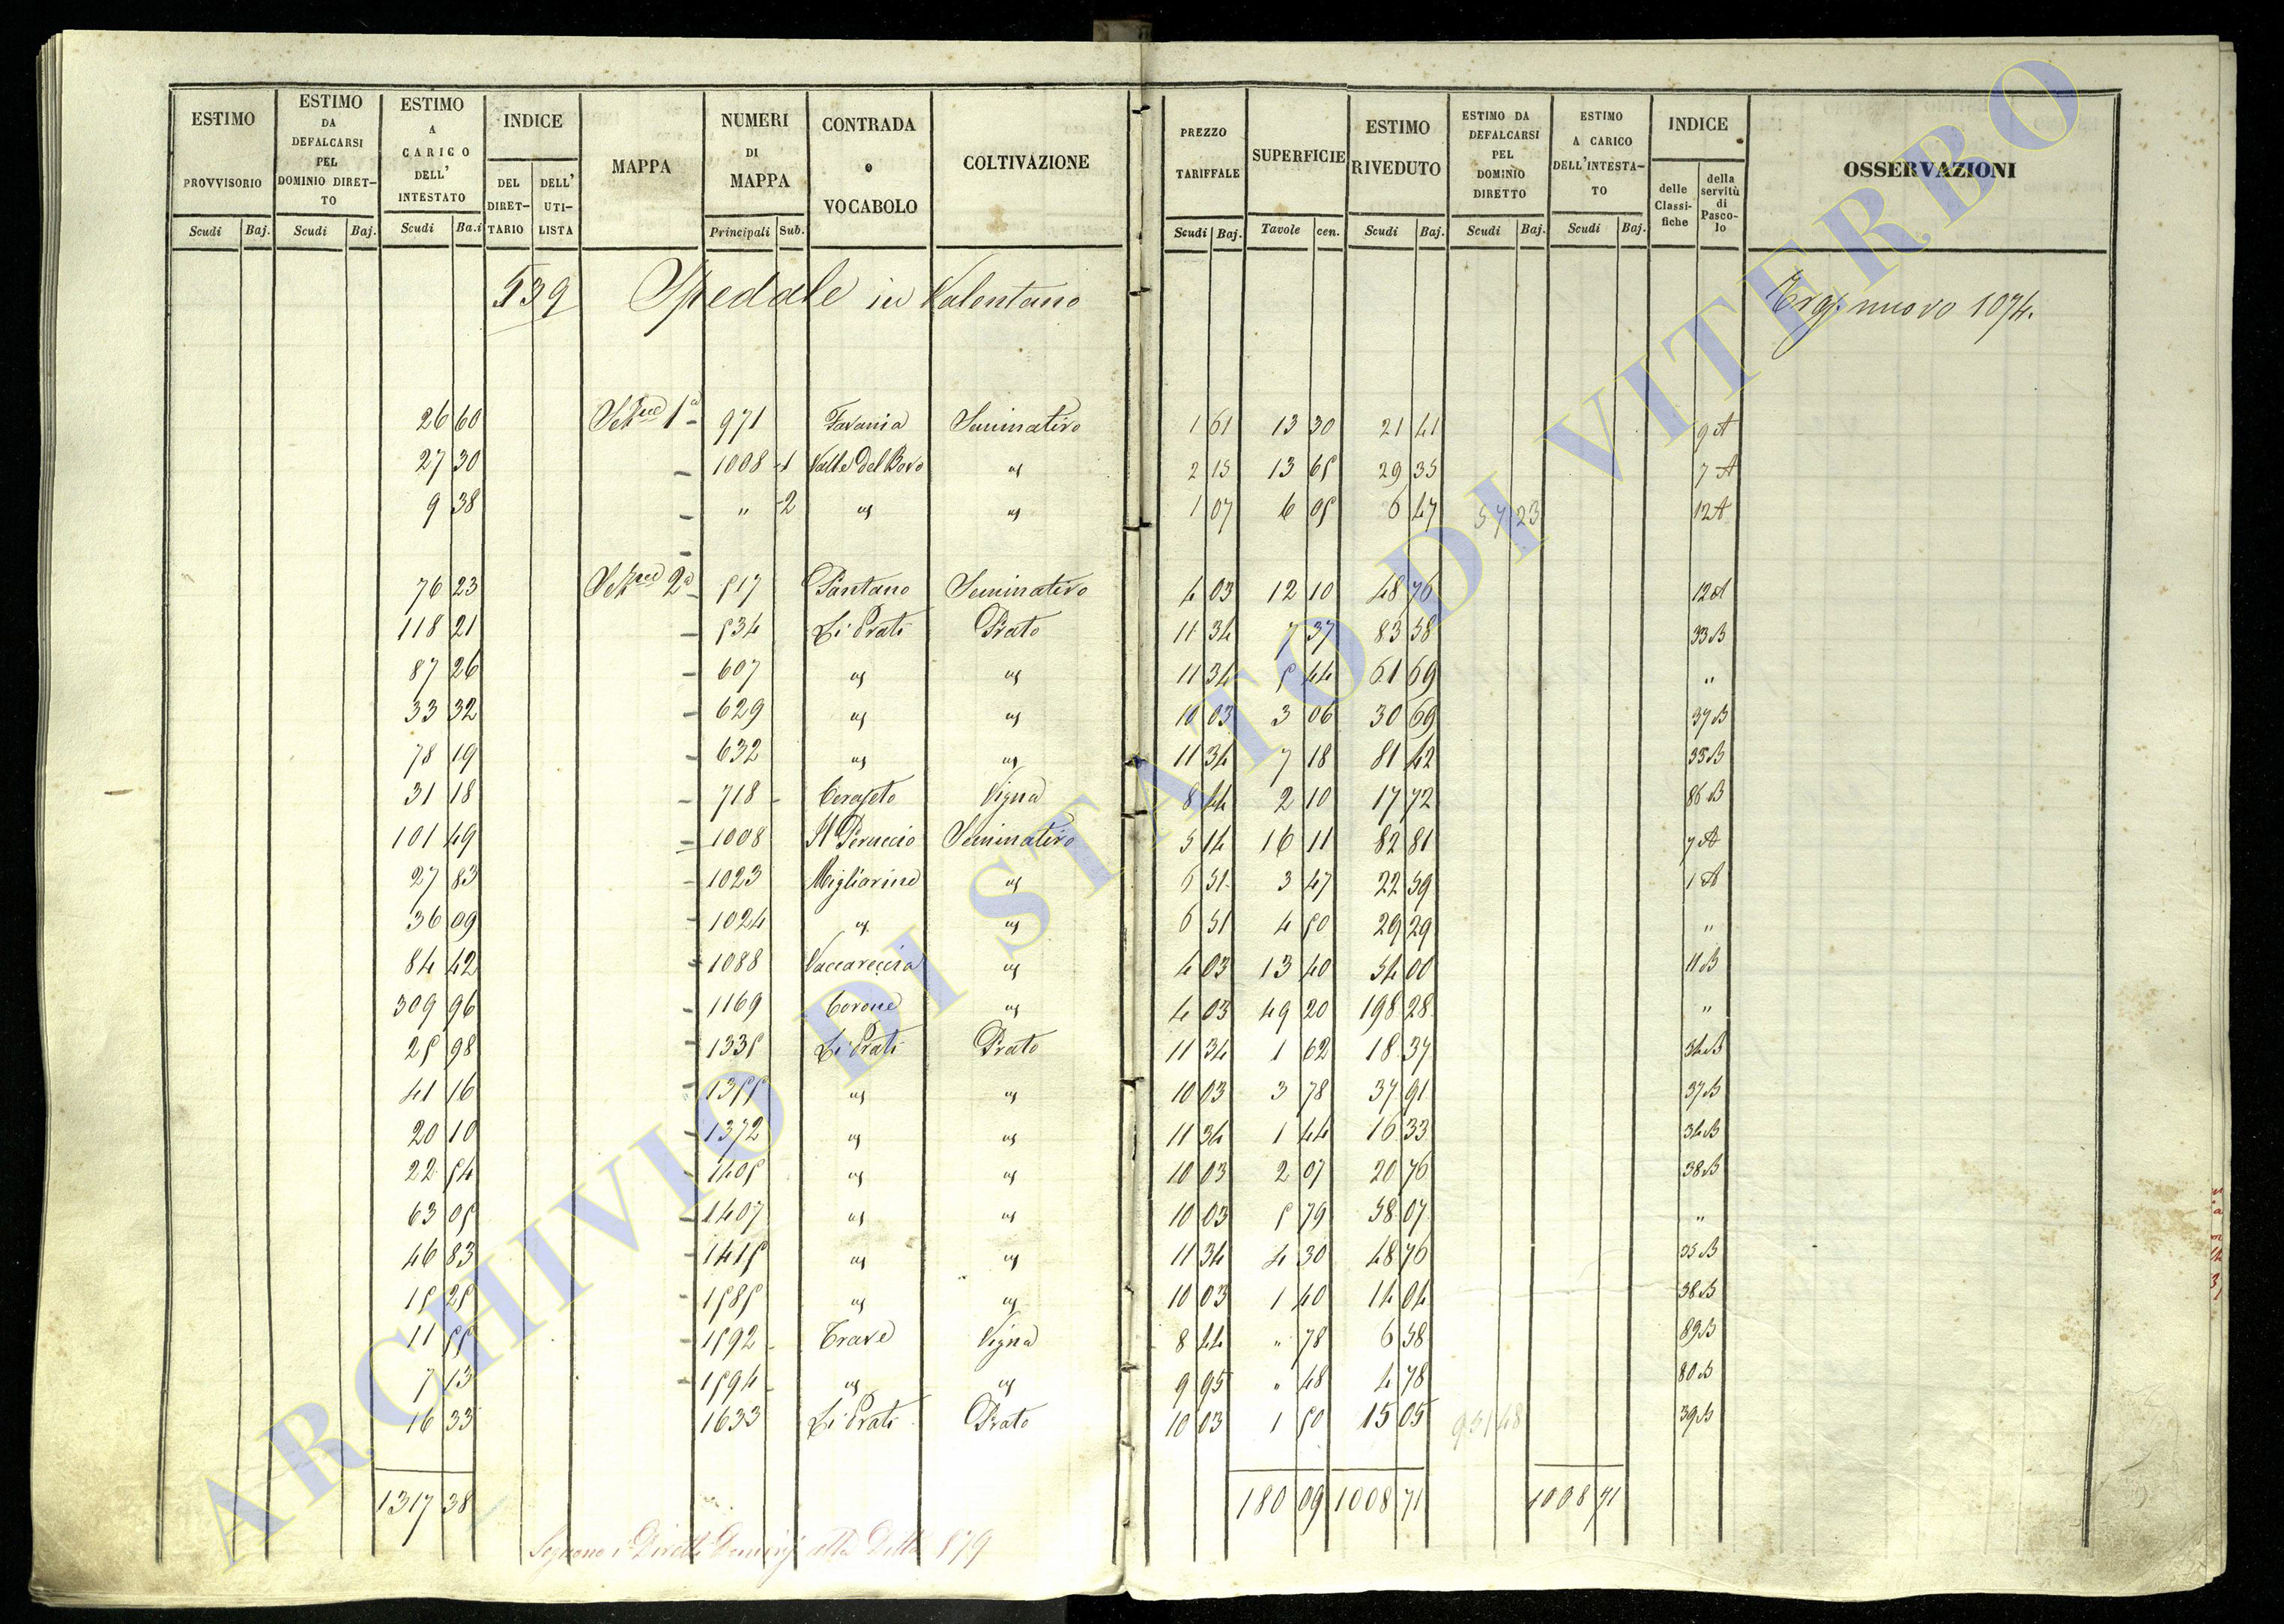 ESTIMO PROVVISORIO | ESTIMO DA DEFALCARSI PEL DOMINIO DIRETTO | ESTIMO A CARICO DELL' INTESTATO | INDICE | MAPPA | NUMERI DI MAPPA | CONTRADA o VOCABOLO | COLTIVAZIONE | PREZZO TARIFFALE | SUPERFICIE | ESTIMO RIVEDUTO | ESTIMO DA DEFALCARSI PEL DOMINIO DIRETTO | ESTIMO A CARICO DELL'INTESTATO | INDICE | OSSERVAZIONI
Scudi | Baj. | Scudi | Baj. | Scudi | Ba.i | DEL DIRETTARIO | DELL' UTILISTA | Principali | Sub. | Scudi | Baj. | Tavole | cen. | Scudi | Baj. | Scudi | Baj. | Scudi | Baj. | delle Classifiche | della servitù di Pascolo
539 Spedale in Valentano nuovo 1074.
26 60 1a 971 Favania Seminativo 1 61 13 30 21 41 9 A
27 30 1008 1 Valle del Bovo " 2 15 13 65 29 35 7 A
9 38 " 2 " " 1 07 6 05 6 47 57 23 12 A
76 23 2a 517 Pantano Seminativo 4 03 12 10 48 76 12 A
118 21 534 Li Prati Prato 11 34 7 37 83 58 33 B
87 26 607 " " 11 34 5 44 61 69 "
33 32 629 " " 10 03 3 06 30 69 37 B
78 19 632 " " 11 34 7 18 81 42 35 B
31 18 718 Ceraseto Vigna 8 44 2 10 17 72 86 B
101 49 1008 Seminativo 5 14 16 11 82 81 7 A
27 83 1023 Migliarine " 6 51 3 47 22 59 1 A
36 09 1024 " " 6 51 4 50 29 29 "
84 42 1088 Vaccareccia " 4 03 13 40 54 00 11 B
309 96 1169 Corone " 4 03 49 20 198 28 "
25 98 1335 Li Prati Prato 11 34 1 62 18 37 34 B
41 16 1355 " " 10 03 3 78 37 91 37 B
20 10 1372 " " 11 34 1 44 16 33 34 B
22 54 1405 " " 10 03 2 07 20 76 38 B
63 05 1407 " " 10 03 5 79 58 07 "
46 83 1415 " " 11 34 4 30 48 76 35 B
15 25 1585 " " 10 03 1 40 14 04 38 B
11 55 1592 Trave Vigna 8 44 " 78 6 58 89 B
7 13 1594 " " 9 95 " 48 4 78 80 B
16 33 1633 Li Prati Prato 10 03 1 50 15 05 951 48 39 B
1317 38 180 09 1008 71 1008 71
Seguono i Diretti Dominj alla Ditta 879
ARCHIVIO DI STATO DI VITERBO